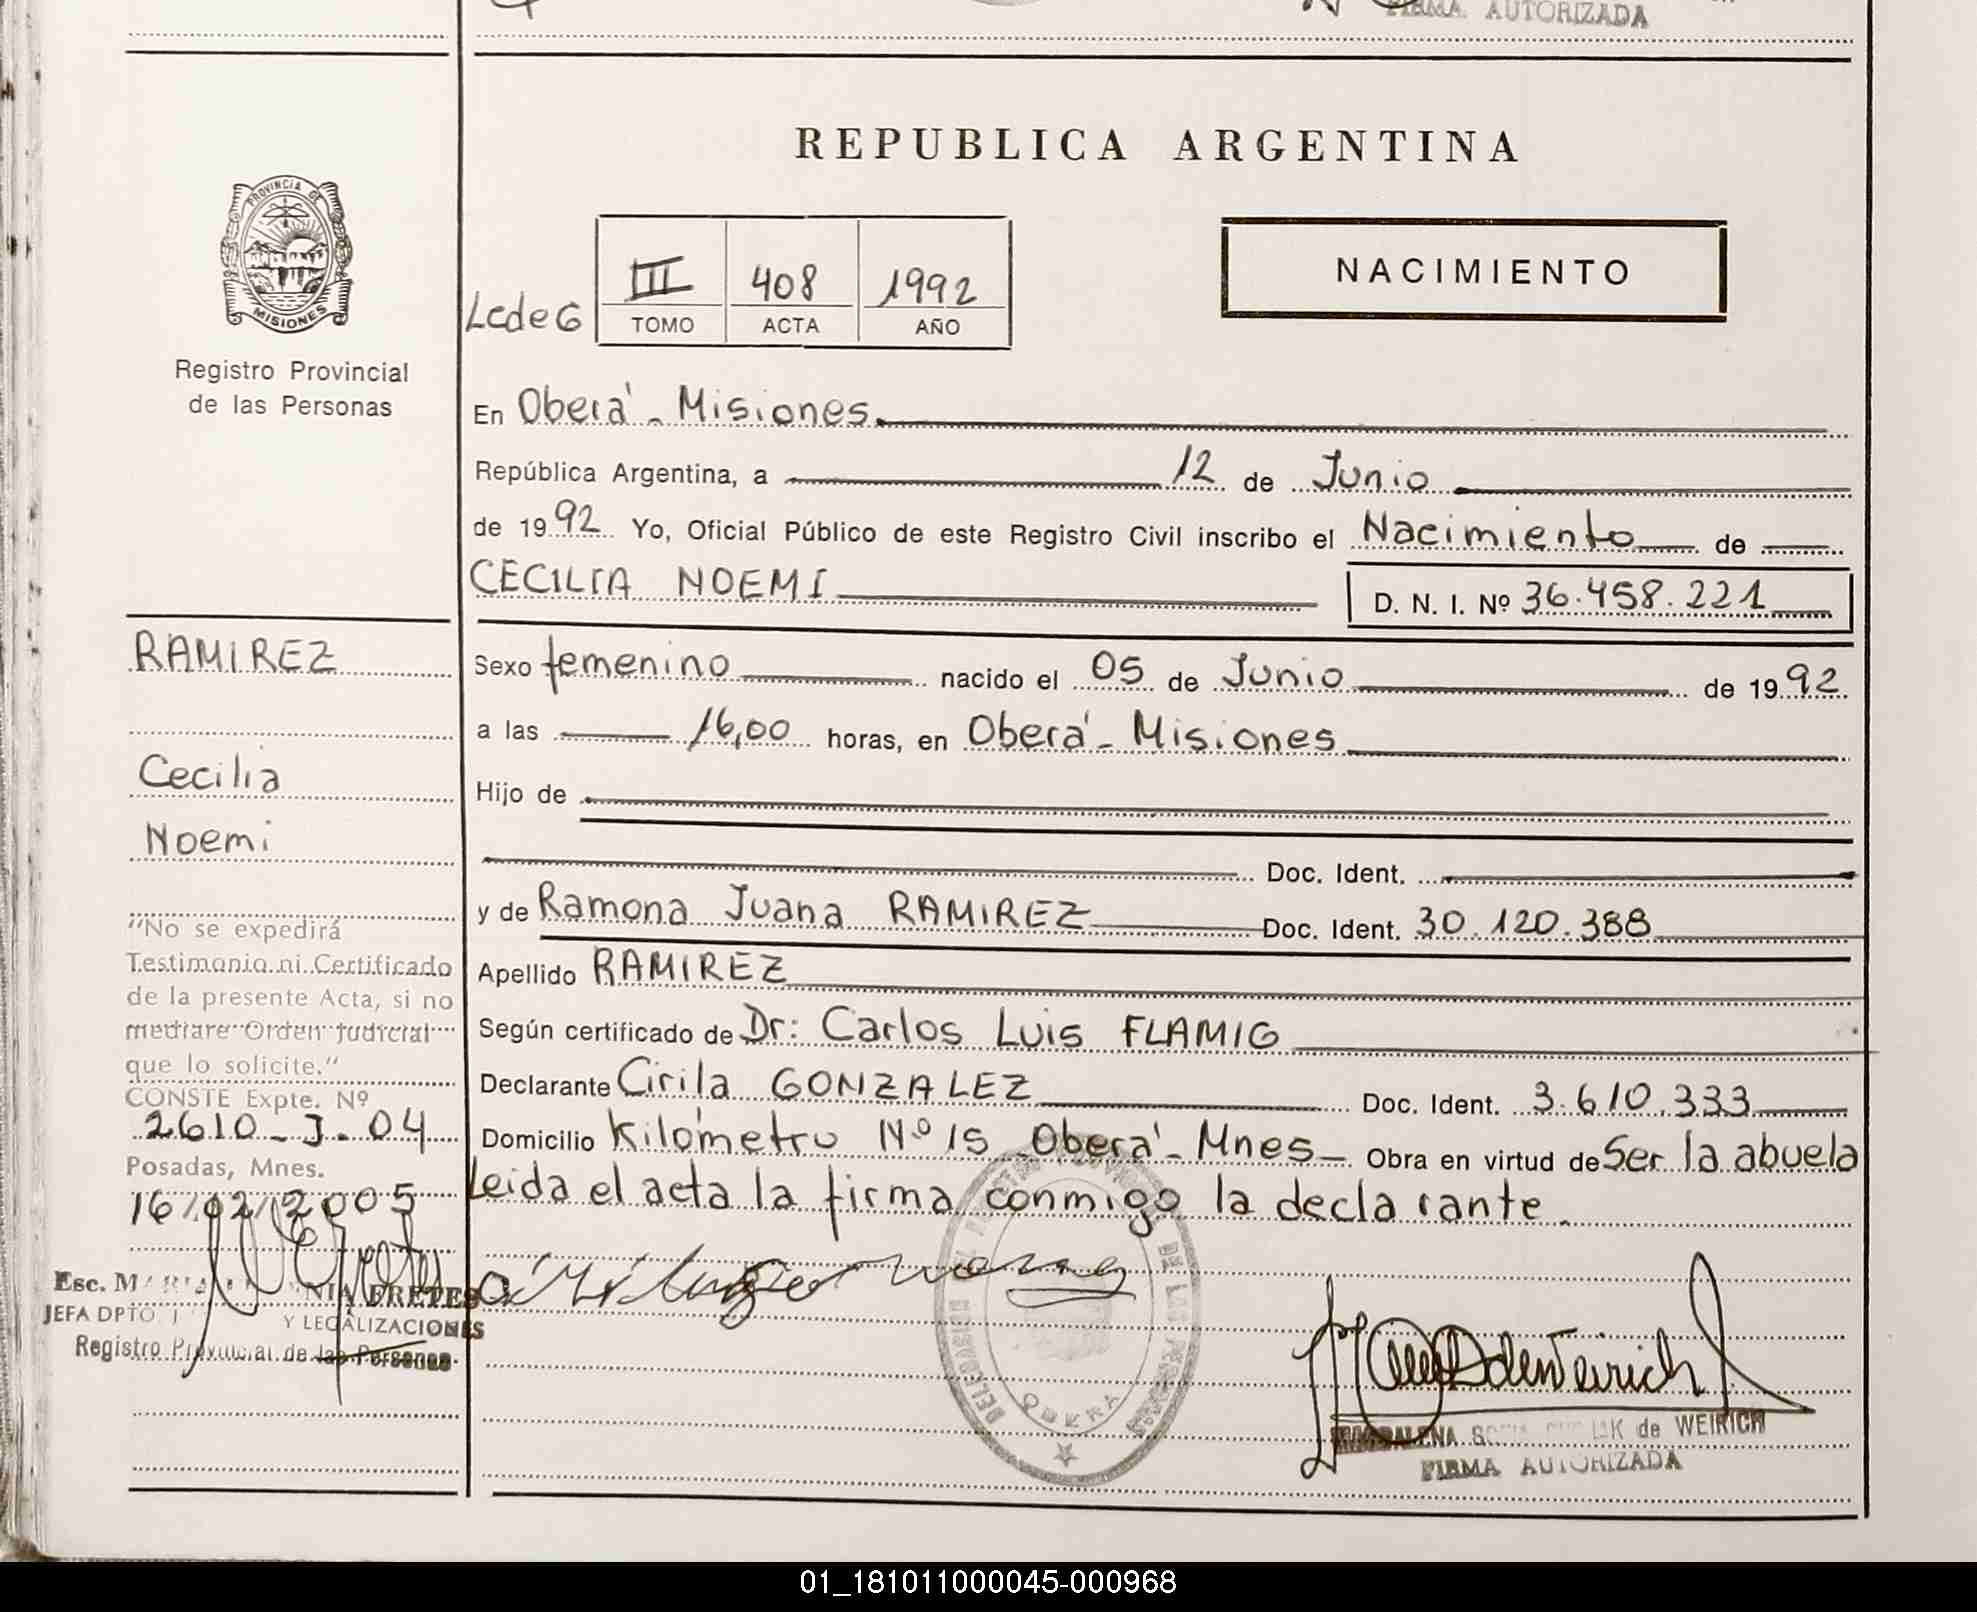 FIRMA AUTORIZADA
REPUBLICA ARGENTINA
PROVINCIA DE
MISIONES
Registro Provincial
de las Personas
NACIMIENTO
LcdeG III 408 1992
TOMO ACTA AÑO
En Oberá - Misiones
República Argentina, a 12 de Junio
de 1992 Yo, Oficial Público de este Registro Civil inscribo el Nacimiento de
CECILIA NOEMI D. N. I. Nº 36.458.221
Sexo femenino nacido el 05 de Junio de 1992
a las 16,00 horas, en Oberá - Misiones
Hijo de
Doc. Ident.
y de Ramona Juana RAMIREZ Doc. Ident. 30.120.388
Apellido RAMIREZ
Según certificado de Dr: Carlos Luis FLAMIG
Declarante Cirila GONZALEZ Doc. Ident. 3.610.333
Domicilio Kilómetro Nº 15 Oberá - Mnes - Obra en virtud de Ser la abuela
Leida el acta la firma conmigo la declarante.
RAMIREZ
Cecilia
Noemi
"No se expedirá
Testimonio ni Certificado
de la presente Acta, si no
mediare Orden Judicial
que lo solicite."
CONSTE Expte. Nº
2610-J-04
Posadas, Mnes.
16/02/2005
Esc. FRETES
JEFA DPTO Y LEGALIZACIONES
Registro Provincial de las Personas
DELEGACION DE LAS PERSONAS
OBERA
MAGDALENA de WEIRICH
FIRMA AUTORIZADA
01_181011000045-000968